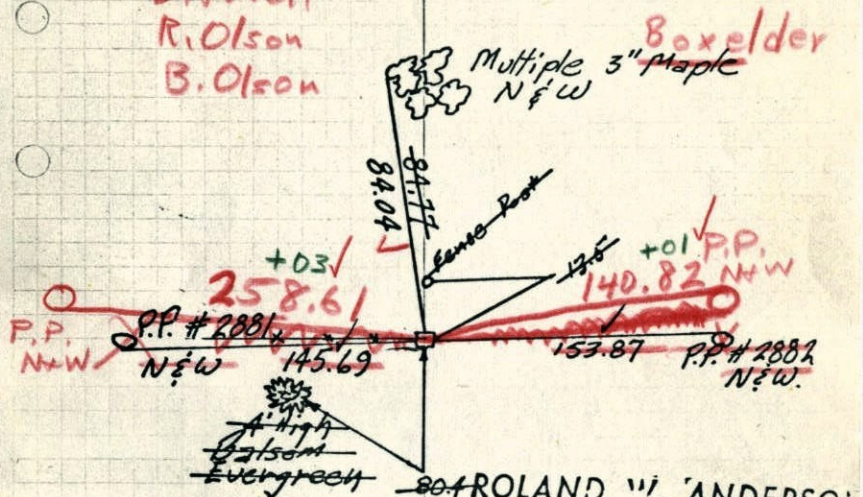 R. Olson
B. Olson
Boxelder
Multiple 3" Maple
N & W
84.77
84.04
Fence Post
13.5
+03 ✓
258.61
+01 ✓
P.P.
N&W
140.82
P.P.
N&W
P.P. #2881
N & W
145.69
153.87
P.P. #2882
N & W.
4' High
Balsem
Evergreen
80.4
ROLAND ANDERSON